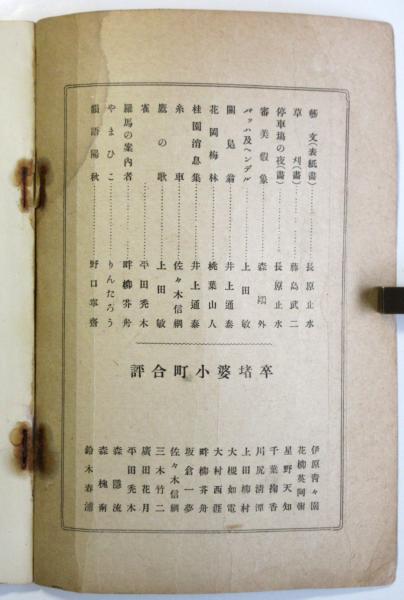 藝文(表紙畫)…………長原止水
草刈(畫)…………藤島武二
停車塲の夜(畫)…………長原止水
審美假象…………森鷗外
バッハ及ヘンデル…………上田敏
關見翁…………井上通泰
花岡梅林…………桃葉山人
桂園消息集…………井上通泰
糸車…………佐々木信綱
鷹の歌…………上田敏
雀…………平田禿木
羅馬の案内者…………畔柳芥舟
やまひこ…………りんたろう
韻語陽秋…………野口寧齋
卒堵婆小町合評
伊原靑々園
花柳英阿彌
星野天知
千葉掬香
川尻淸潭
上田柳村
大槻如電
大村西涯
畔柳芥舟
坂倉一夢
佐々木信綱
三木竹二
廣田花月
平田禿木
森隱流
森槐南
鈴木春浦